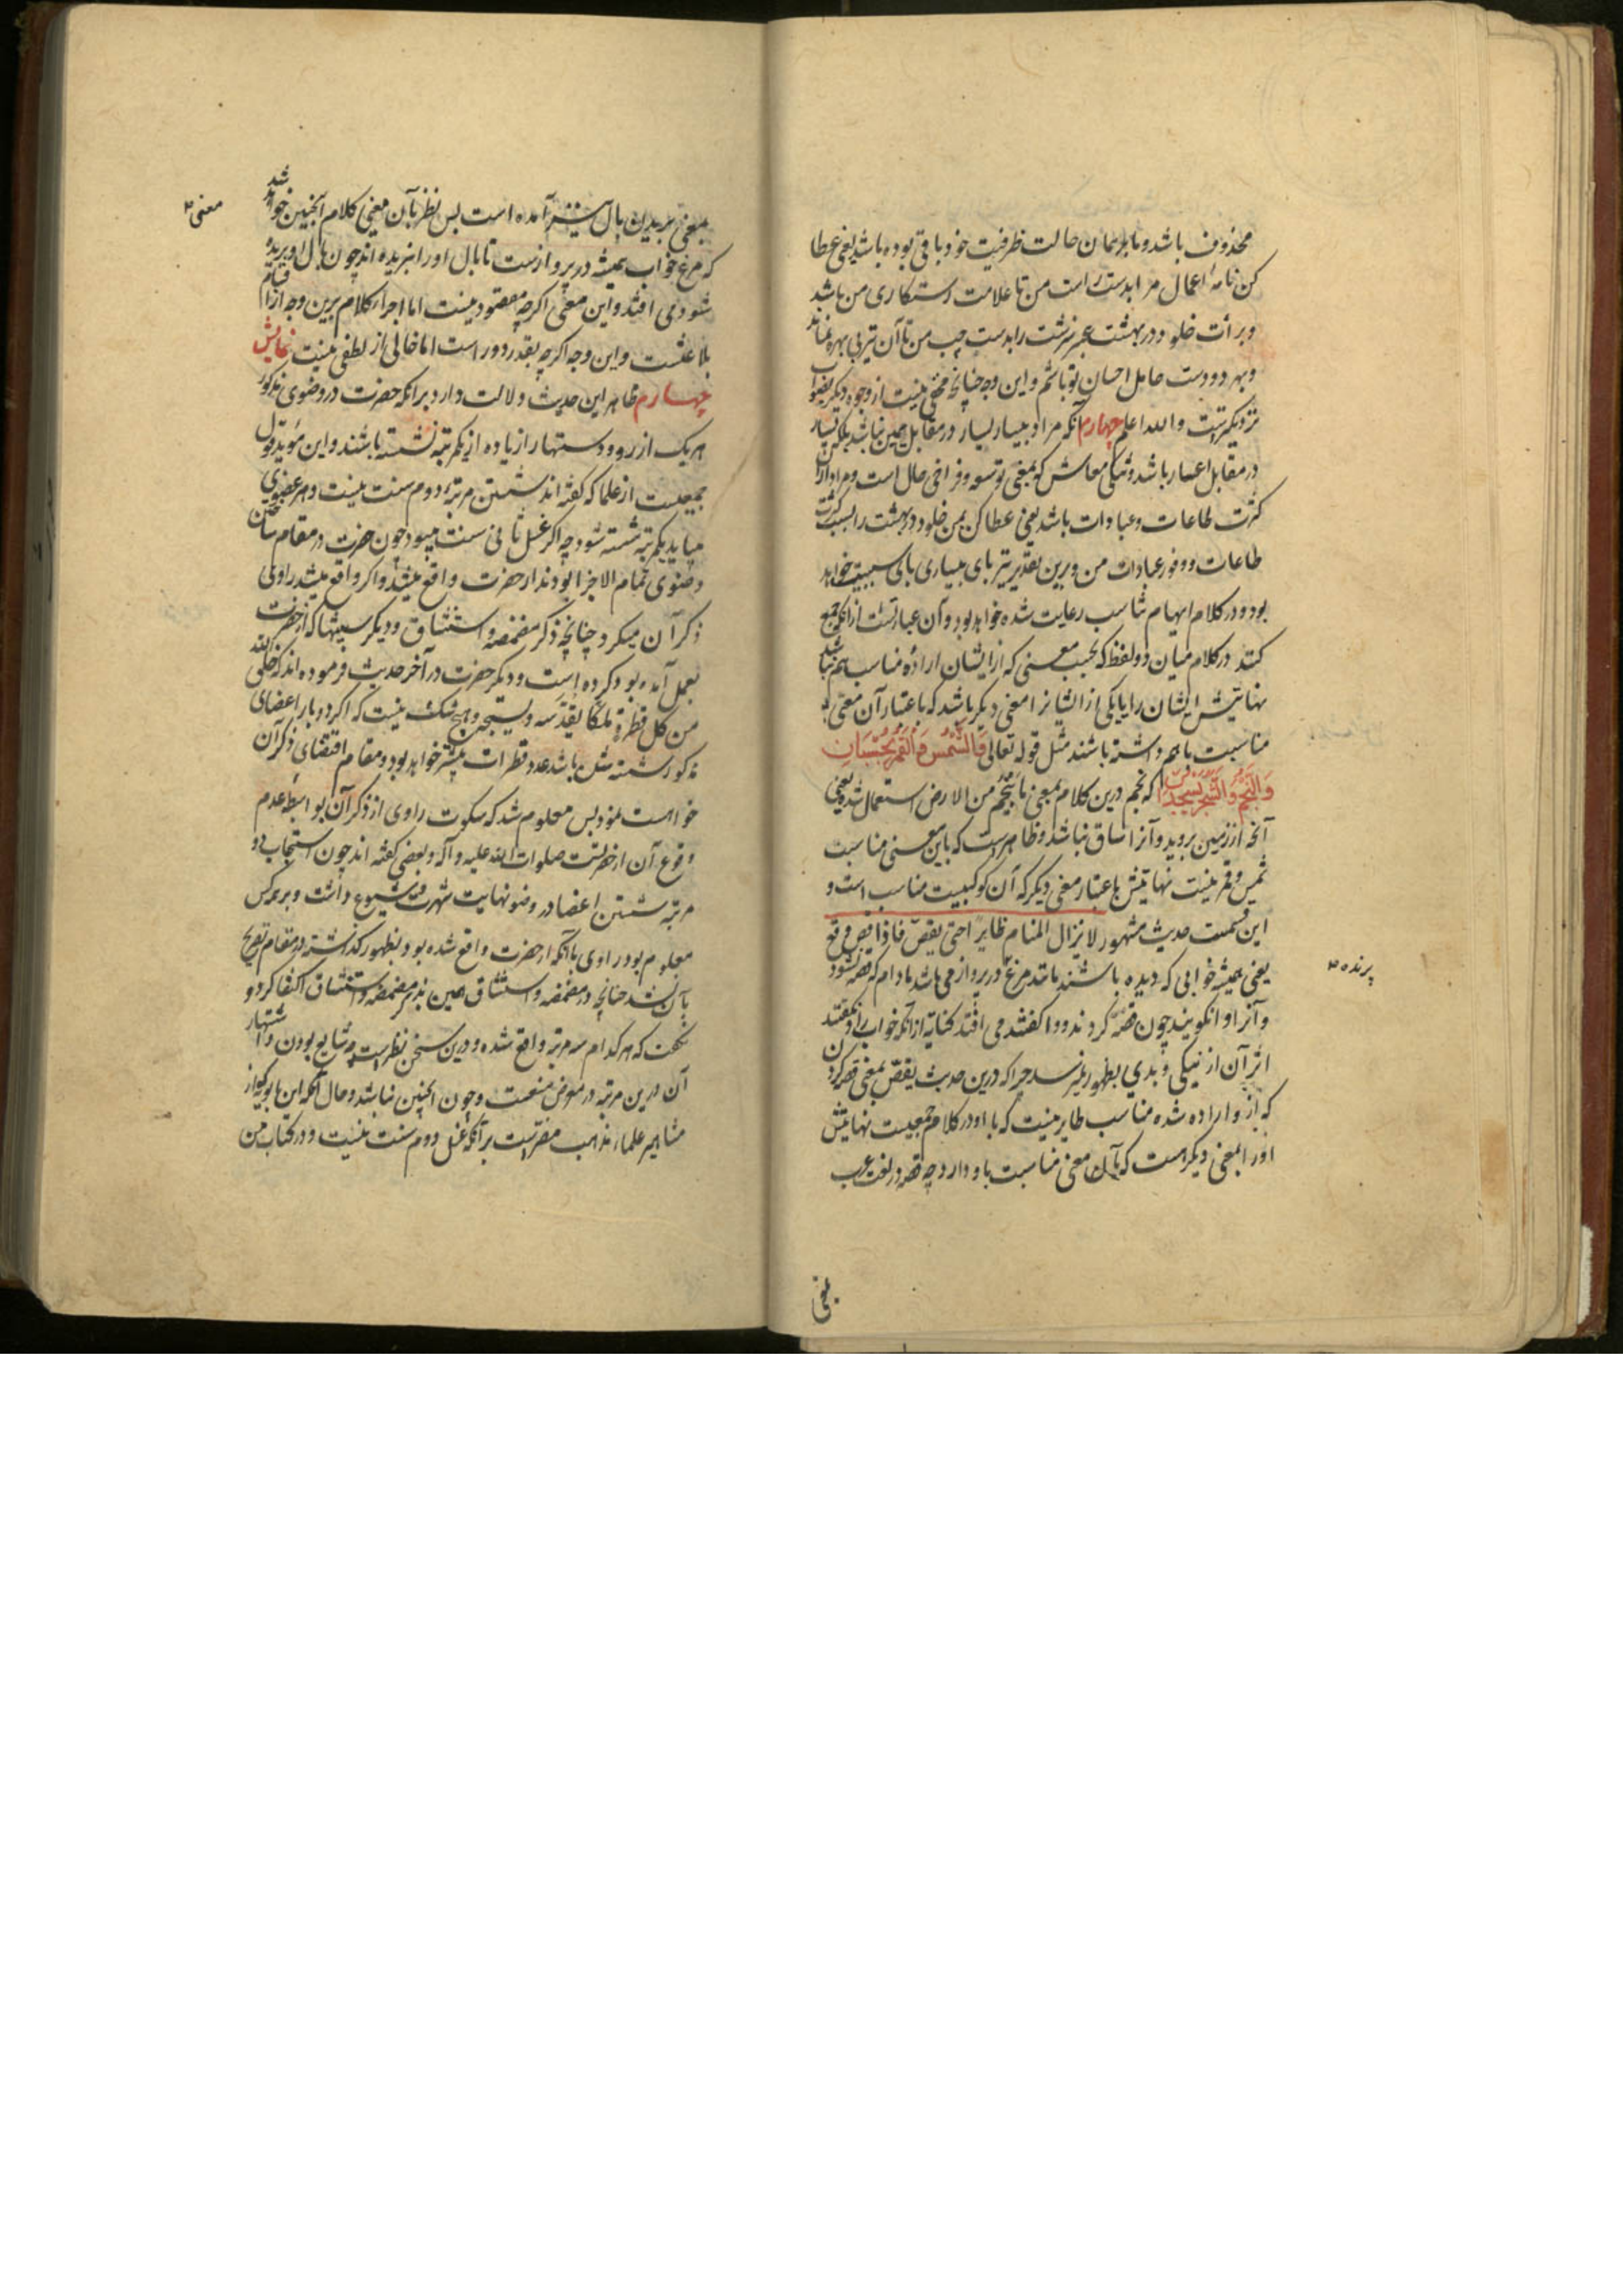 محذوف باشد و با بر همان حالت ظرفیت خود باقی بوده باشد یعنی عطا
کن نامهٔ اعمال مرا بدست راست من تا علامت رستکاری من باشد
و برات خلود در بهشت عنبر سرشت را بدست چپ من تا آن نیز بی بهره نماند
و بهر دو دست حامل احسان تو باشم و این وجه چنانچه مخفی نیست از وجوه دیگر بصواب
نزدیکترست والله اعلم چهارم آنکه مراد بیسار یسار در مقابل یمین نباشد بلکه یسار
در مقابل اعسار باشد و تنکی معاش که بمعنی توسعه و فراخی حال است و مراد ازان
کثرت طاعات و عبادات باشد یعنی عطا کن بمن خلود در بهشت را بسبب کثرت
طاعات و وفور عبادات من و برین تقدیر نیز بای بیساری بای سببیت خواهد
بود و در کلام ایهام تناسب رعایت شده خواهد بود و آن عبارتست از آنکه جمع
کنند در کلام میان دو لفظ که بحسب معنی که از ایشان اراده شده مناسب هم نباشند
نهایتش ایشان را یا یکی از ایشانرا معنی دیگر باشد که باعتبار آن معنی
مناسبت باهم داشته باشند مثل قوله تعالی فالشمس والقمر بحسبان
والنجم والشجر یسجدان که نجم درین کلام بمعنی ما ینجم من الارض استعمال شده یعنی
آنچه از زمین بروید و آنرا ساق نباشد و ظاهرست که باین معنی مناسبت
شمس و قمر نیست نهایتش باعتبار معنی دیگر که آن کوکبیت مناسب است و
این قسمت حدیث مشهور لا یزال المنام طایرا حتی یقص فاذا قص وقع
یعنی همیشه خوابی که دیده باشند مانند مرغ در پرواز می باشد مادام که قصه نشود
پرنده
و آنرا وانکویند چون قصه کردند و واکفتند می افتد کنایه از آنکه خواب را تا نکفتند
اثر آن از نیکی و بدی بظهور نمیرسد چرا که درین حدیث یقص بمعنی قصه کردن
که ازو اراده شده مناسب طایر نیست که با او در کلام جمعیست نهایتش
اورا معنی دیگر هست که بآن معنی مناسبت باو دارد چه قصه در لغت عرب
بمعنی
بمعنی بریدن بال نیز آمده است پس نظر بآن معنی کلام اینچنین خواهد شد
معنی
که مرغ خواب همیشه در پروازست تا بال اورا نبریده اند چون بال او بریده
شود می افتد و این معنی اکرچه مقصود نیست اما اجراء کلام برین وجه از اقسام
بلاغتست و این وجه اکرچه بقدر دور است اما خالی از لطفی نیست نمایش
چهارم ظاهر این حدیث دلالت دارد برانکه حضرت در وضوی مذکور
هر یک از رو و دستها را زیاده از یکمرتبه نشسته باشند و این مؤید قول
جمعیست از علما که کفته اند شستن مرتبه دوم سنت نیست و هر عضوی
میباید یکمرتبه شسته شود چه اکر غسل ثانی سنت میبود چون حضرت در مقام ساختن
وضوی تمام الاجزا بودند از حضرت واقع میشد و اکر واقع میشد راوی
ذکر آن میکرد چنانچه ذکر مضمضه و استنشاق و دیگر سنتها که از حضرت
بعمل آمده بود کرده است و دیگر حضرت در آخر حدیث فرموده اند که خلق الله
من کل قطرة ملکا یقدسه و یسبحه و هیچ شک نیست که اکر دو بار اعضای
مذکور شسته شده باشد عدد قطرات بیشتر خواهد بود و مقام اقتضای ذکر آن
خواهست نمود پس معلوم شد که سکوت راوی از ذکر آن بواسطه عدم
وقوع آن از حضرتست صلوات الله علیه و آله و بعضی کفته اند چون استحباب دو
مرتبه شستن اعضا در وضو نهایت شهرت و شیوع داشت و بر همه کس
معلوم بود راوی باآنکه از حضرت واقع شده بود و بظهور کذاشته در مقام تصریح
بآن نشد چنانچه در مضمضه و استنشاق همین بذکر مضمضه و استنشاق اکتفا کرد و
نکفت که هر کدام سه مرتبه واقع شده و درین سخن نظرست چه شایع بودن و اشتهار
آن درین مرتبه در معرض منعست و چون اینچنین نباشد و حال آنکه ابن بابویه که از
مشاهیر علماء مذهب مقرست بر آنکه غسل دوم سنت نیست و در کتاب من